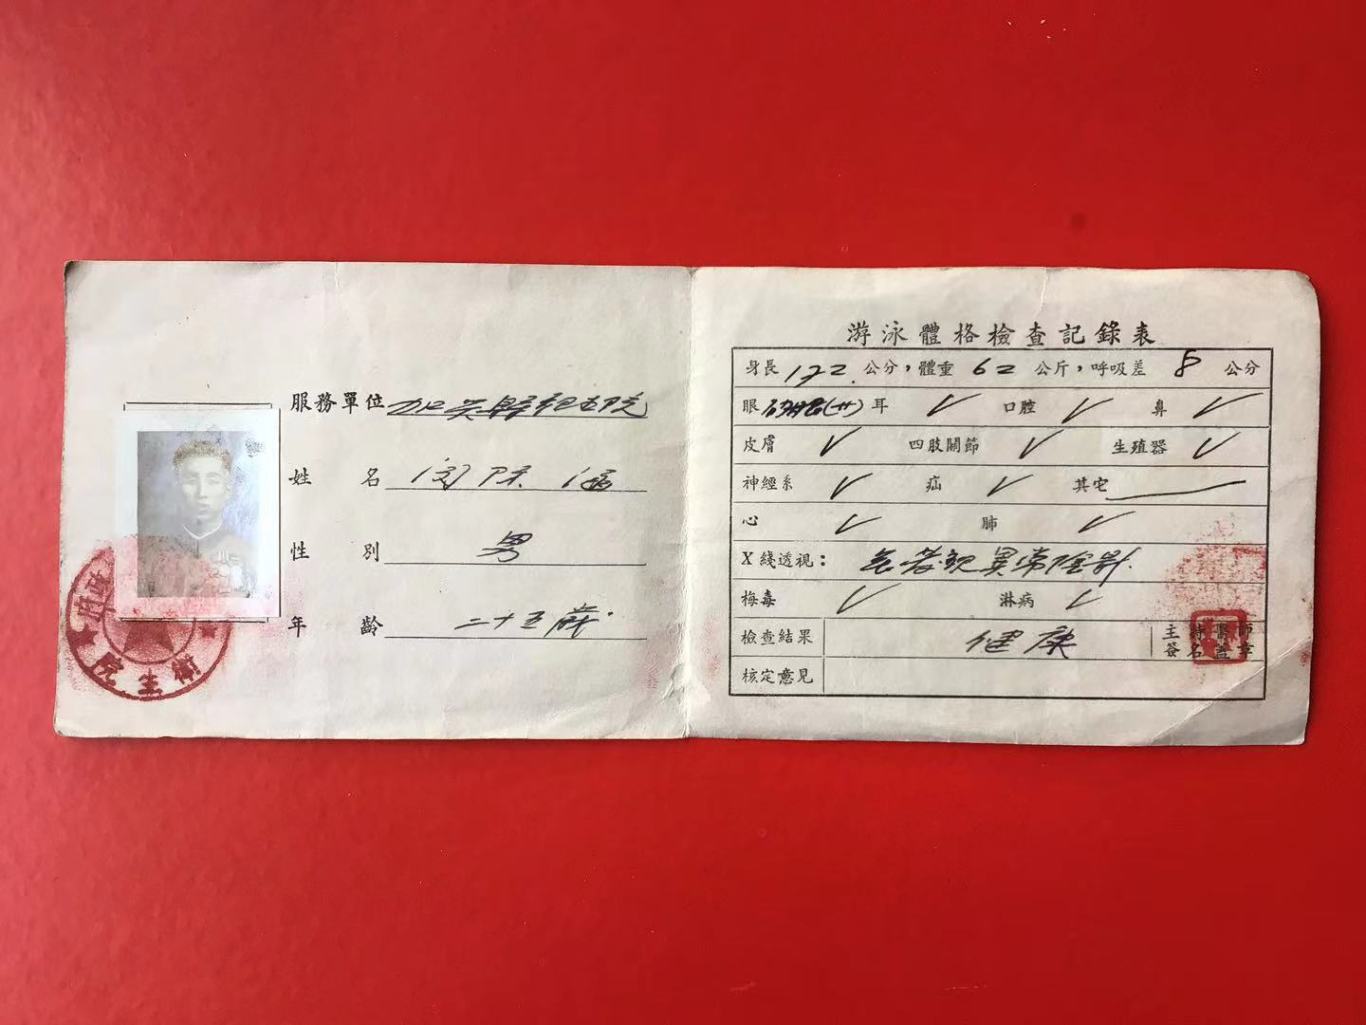 服務單位
姓名
性別 男
年齡 二十五歲
衛生院
游泳體格檢查記錄表
身長 172 公分，體重 62 公斤，呼吸差 8 公分
眼 沙眼(卄) 耳 ✓ 口腔 ✓ 鼻 ✓
皮膚 ✓ 四肢關節 ✓ 生殖器 ✓
神經系 ✓ 疝 ✓ 其它
心 ✓ 肺 ✓
X綫透視： 異常陰影
梅毒 ✓ 淋病 ✓
檢查結果 健康 主持醫師
簽名蓋章
核定意見